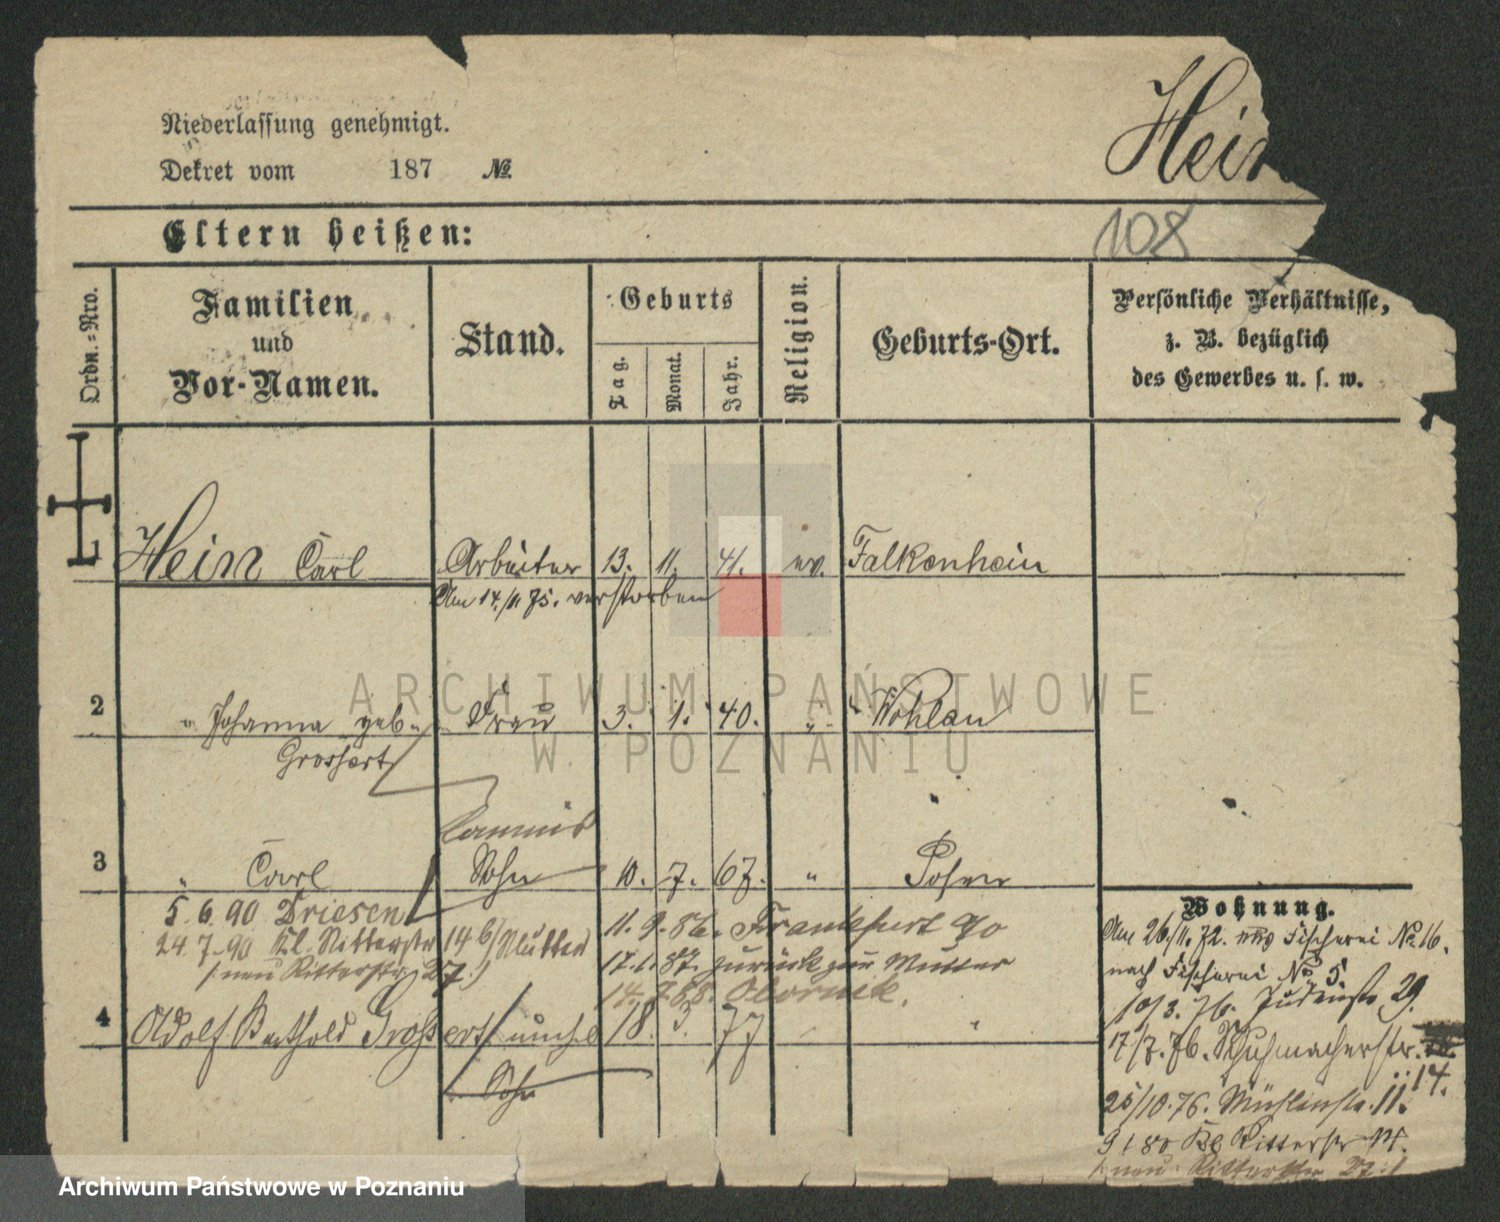 Niederlassung genehmigt.
Dekret vom 187 №
Hein
108
Eltern heißen:
Ordn.-Nro.
Familien und Vor-Namen.
Stand.
Geburts
Tag.
Monat.
Jahr.
Religion.
Geburts-Ort.
Persönliche Verhältnisse,
z. B. bezüglich
des Gewerbes u. s. w.
1 Hein Carl Arbeiter 13. 11. 41. ev. Falkenhein
Am 14./11. 75. verstorben
2 " Johanna geb. Frau 3. 1. 40. " Wohlau
Grossert
3 " Carl Sohn 10. 7. 67. " Posen
5. 6. 90 Driesen
24. 7. 90 Kl. Ritterstr 14 b/Mutter
(neu Ritterstr 27.)
11. 9. 86. Frankfurt
17. 1. 87. zurück zur Mutter
14. 7. 88. Obornik.
4 Adolf Berthold Grossert unehel 18. 3. 77 "
Sohn
Wohnung.
Am 26/11. 72. von Fischerei No 16.
nach Fischerei No 5.
10/3. 76. Judenstr 29.
17/7. 76. Schuhmacherstr. 14.
25/10. 76. Mühlenstr. 11.
9 1 80 Kl Ritterstr 14.
(neu Ritterstr 27.)
ARCHIWUM PAŃSTWOWE
W POZNANIU
Archiwum Państwowe w Poznaniu